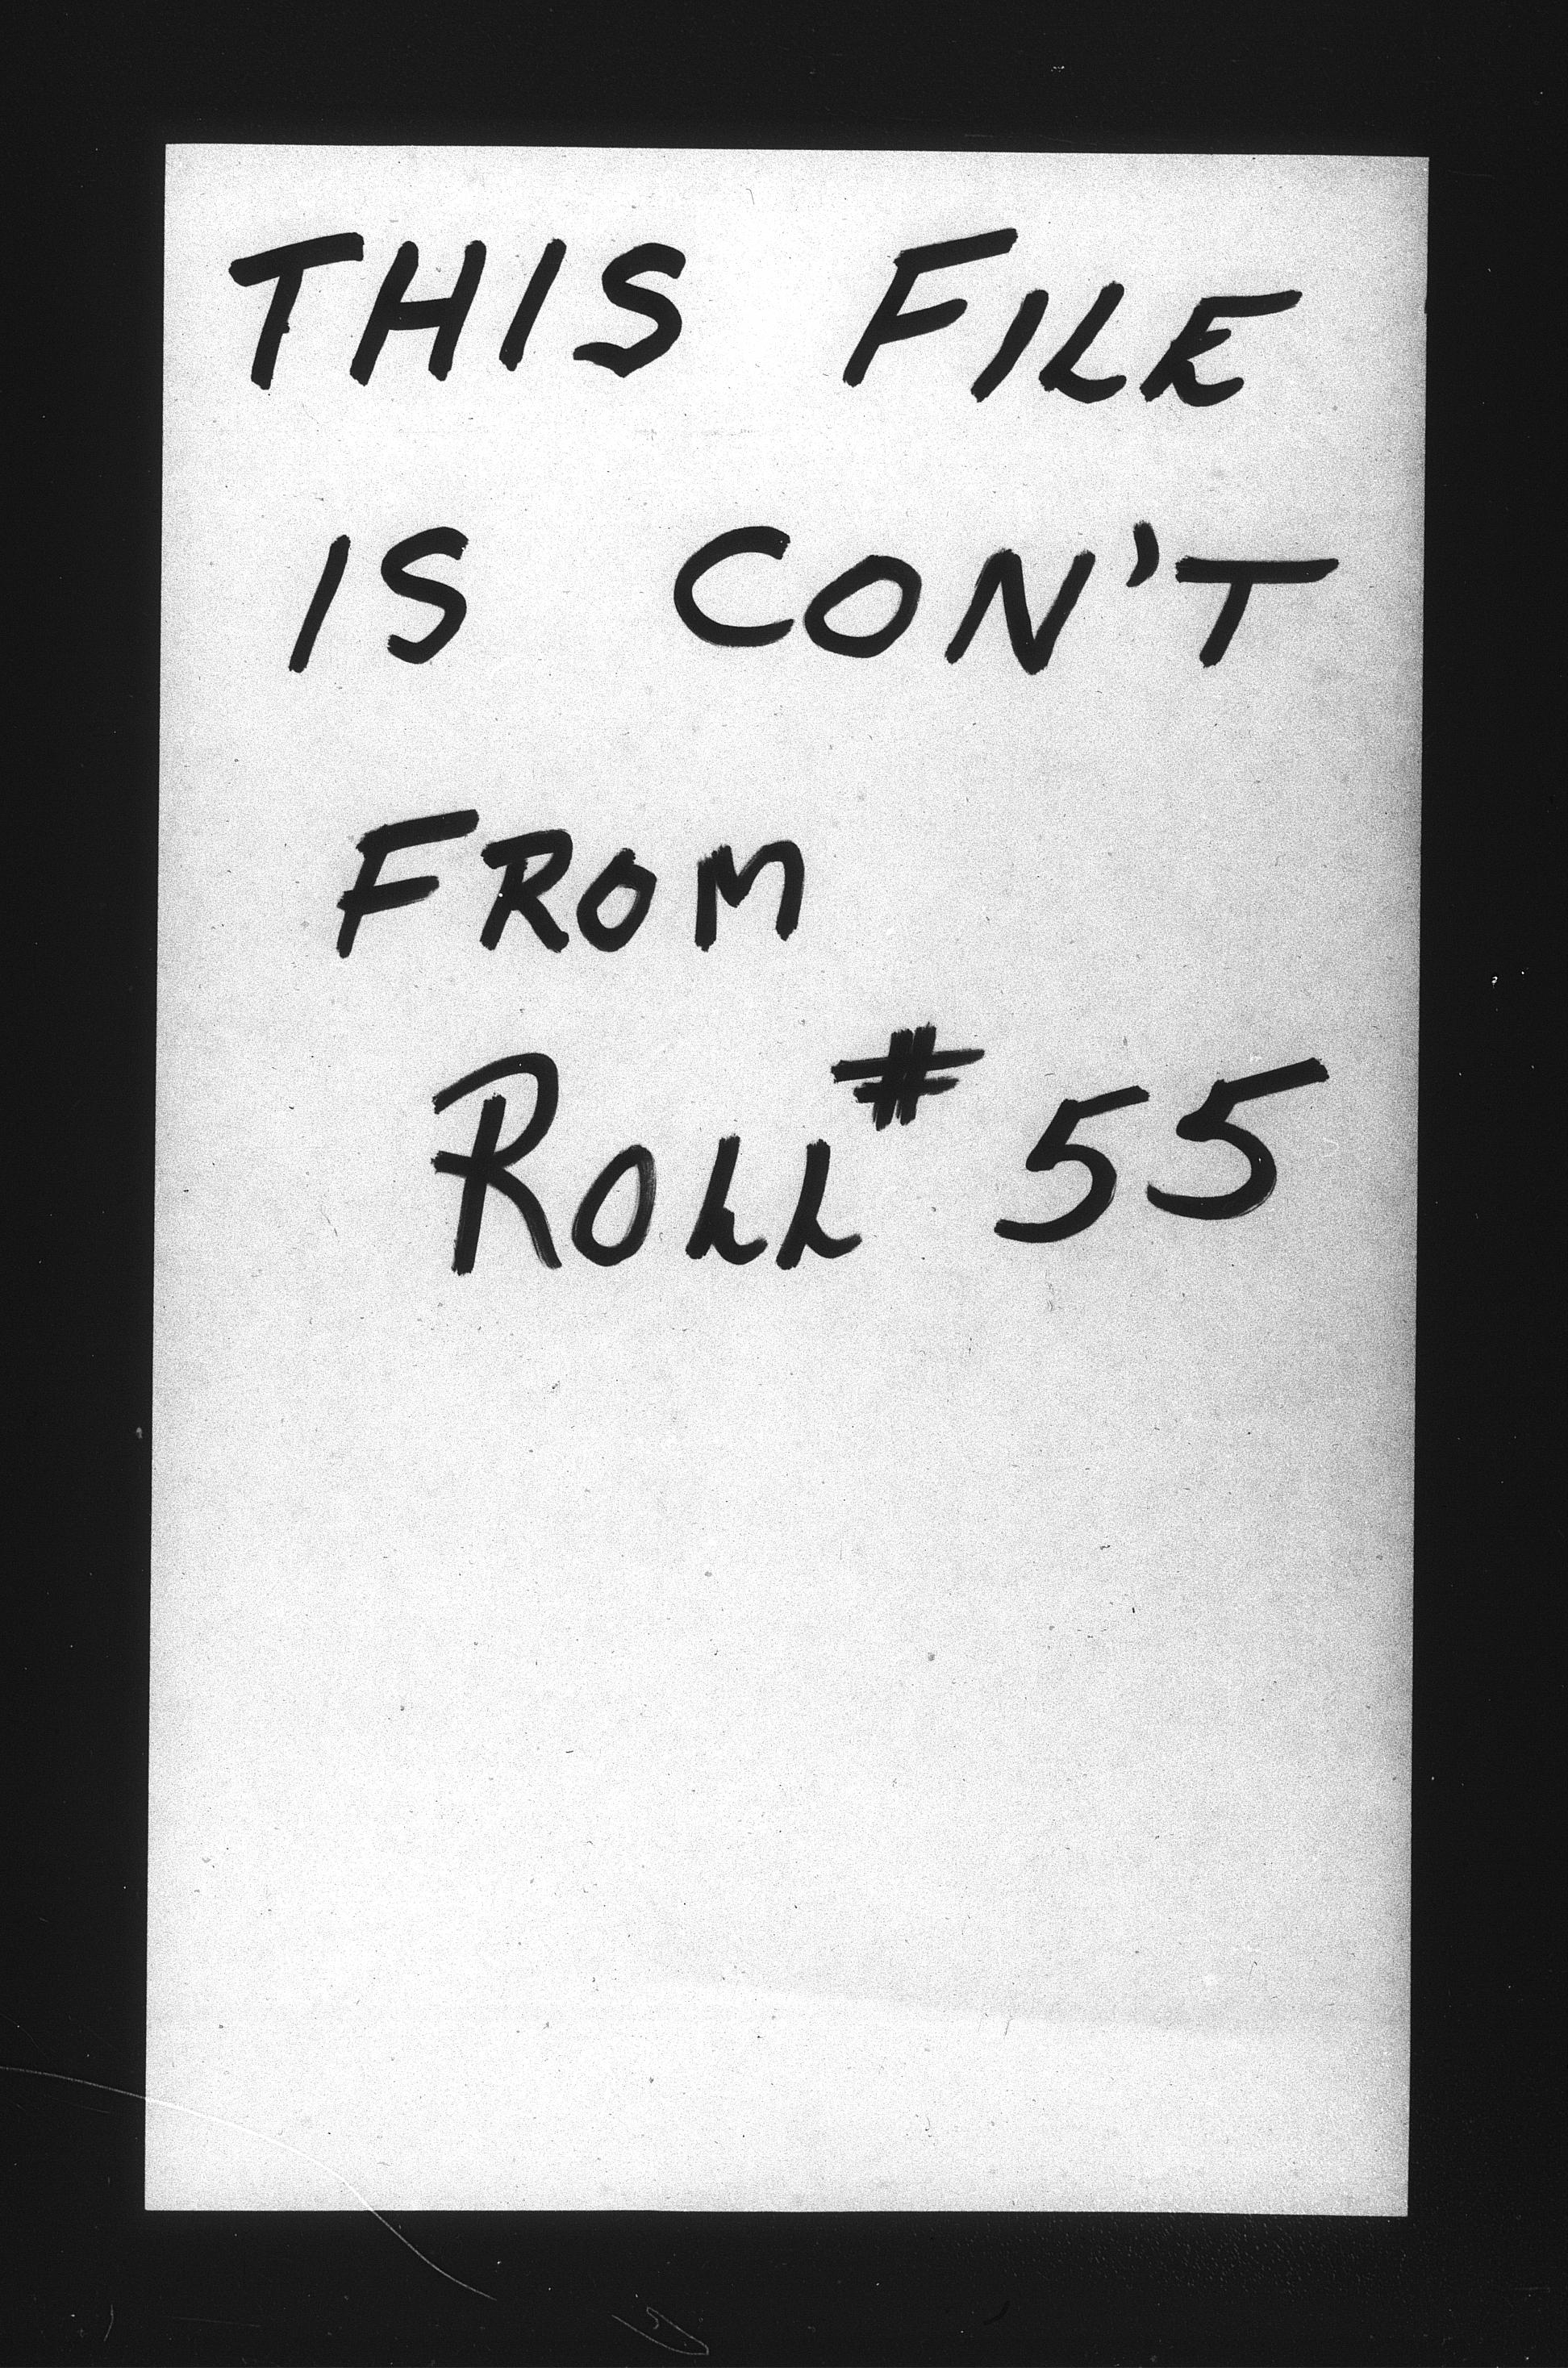 THIS FILE
IS CON'T
FROM
ROLL # 55